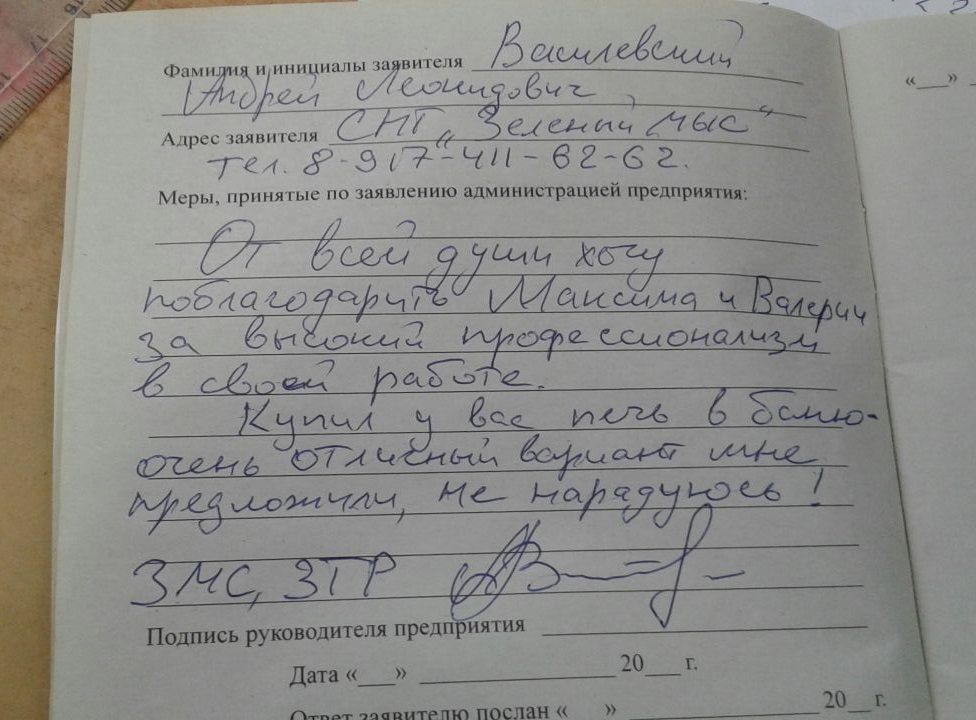 Фамилия и инициалы заявителя Василевский
Андрей Леонидович
Адрес заявителя СНТ "Зеленый мыс"
тел. 8-917-411-62-62.
Меры, принятые по заявлению администрацией предприятия:
От всей души хочу
поблагодарить Максима и Валерии
за высокий профессионализм
в своей работе.
Купил у вас печь в баню-
очень отличный вариант мне
предложили, не нарадуюсь!
ЗМС, ЗТР
Подпись руководителя предприятия
Дата «___» ____________ 20___ г.
Ответ заявителю послан «___» ____________ 20__ г.
«__»